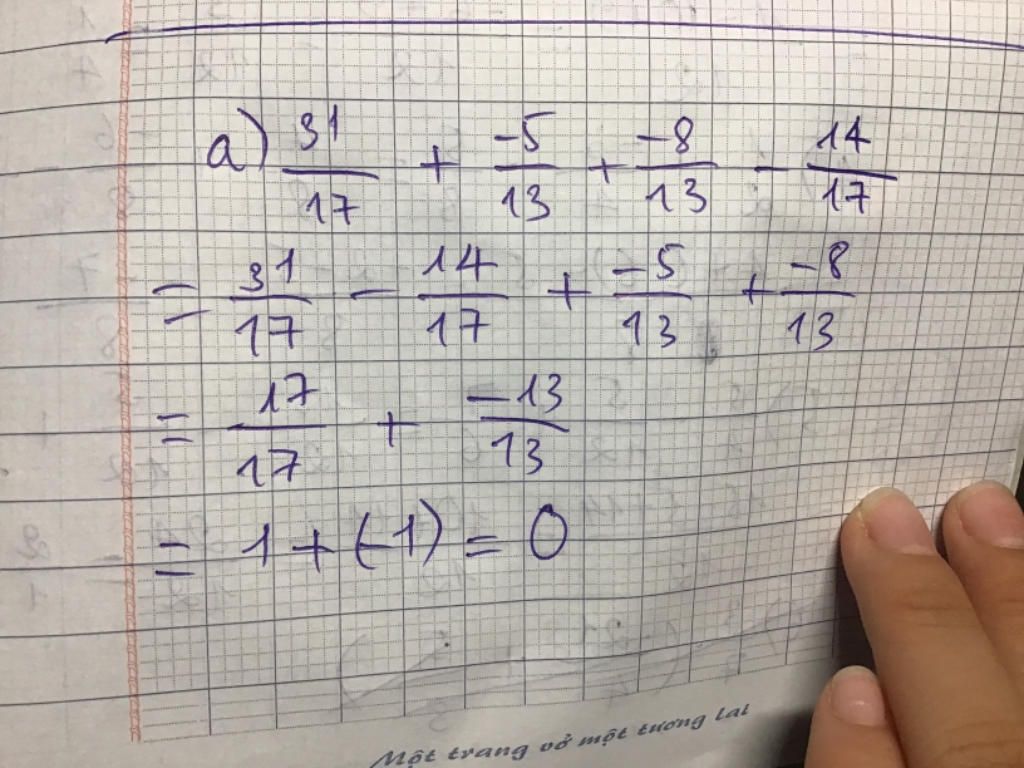 a) 31/17 + -5/13 + -8/13 - 14/17
= 31/17 - 14/17 + -5/13 + -8/13
= 17/17 + -13/13
= 1 + (-1) = 0
Một trang vở một tương lai